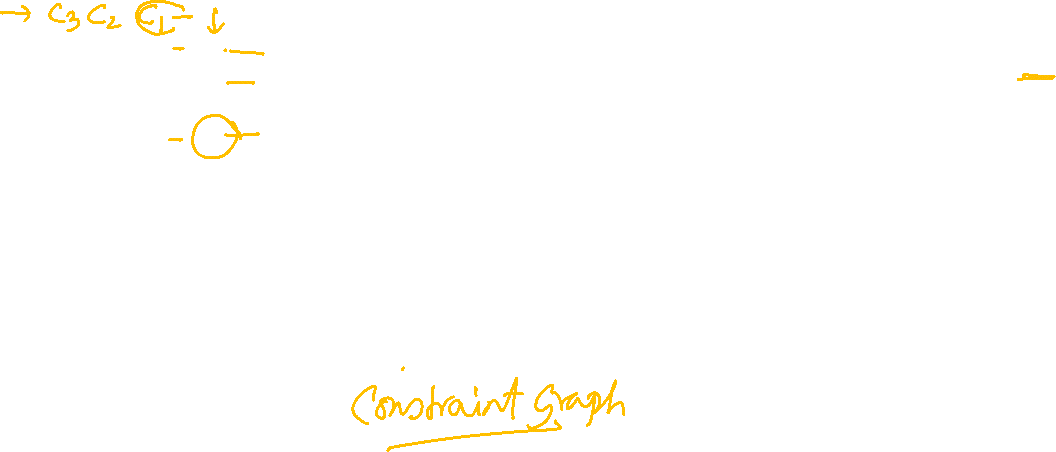 → C3 C2 C1 ↓
Constraint Graph